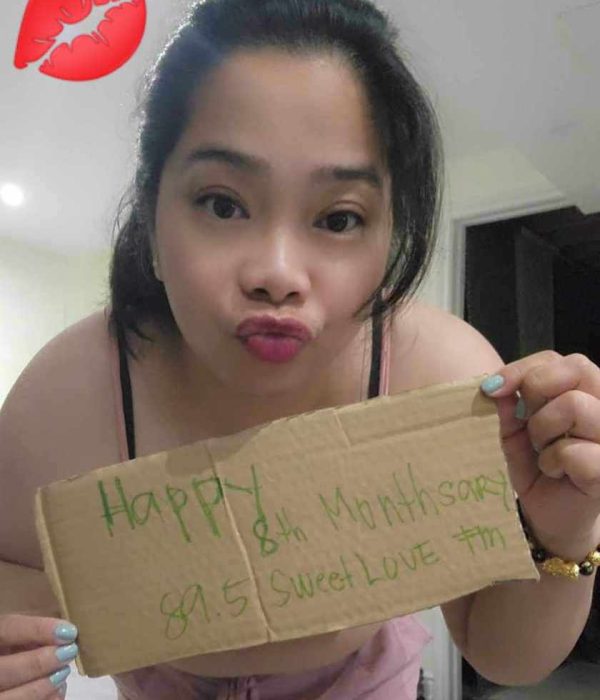 Happy
8th Monthsary
89.5 Sweet LOVE Fm